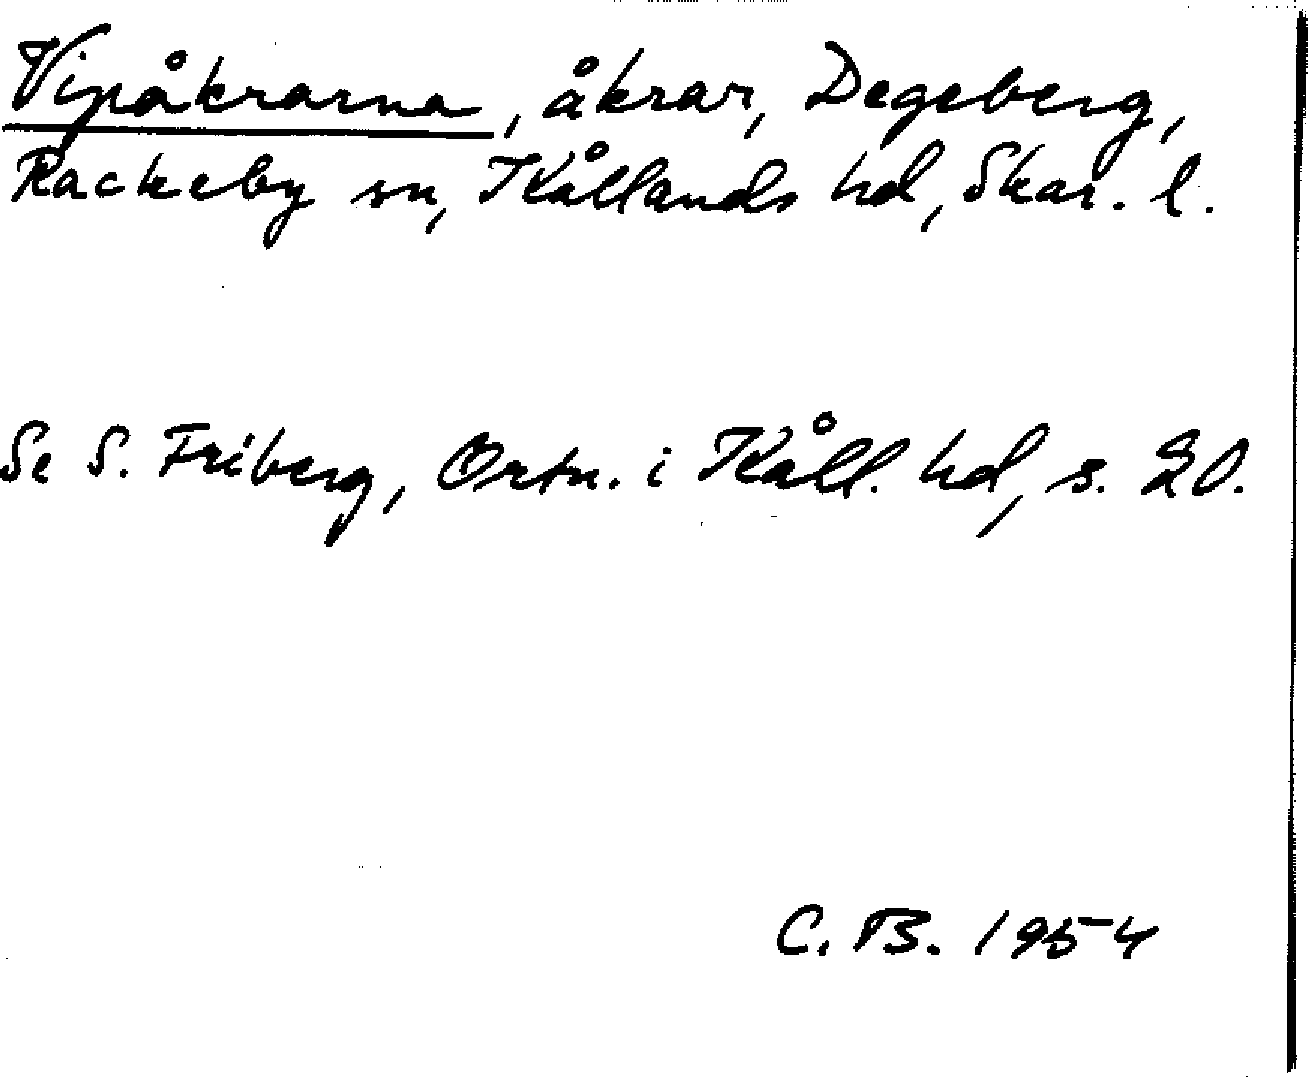 Vipåkrarna, åkrar, Degeberg,
Rackeby sn, Kållands hd, Skar. l.
Se S. Friberg, Ortn. i Kåll. hd, s. 20.
C. B. 1954